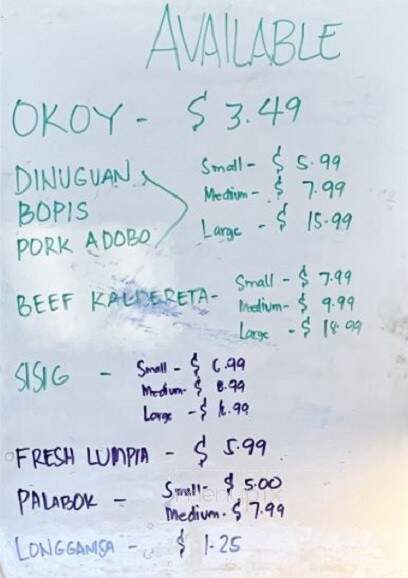 AVAILABLE
OKOY - $ 3.49
DINUGUAN
BOPIS
PORK ADOBO
Small - $ 5.99
Medium - $ 7.99
Large - $ 15.99
BEEF KALDERETA -
Small - $ 7.99
Medium - $ 9.99
Large - $ 18.99
SISIG -
Small - $ 6.99
Medium - $ 8.99
Large - $
FRESH LUMPIA - $ 5.99
PALABOK -
Small - $ 5.00
Medium - $ 7.99
LONGGANISA - $ 1.25